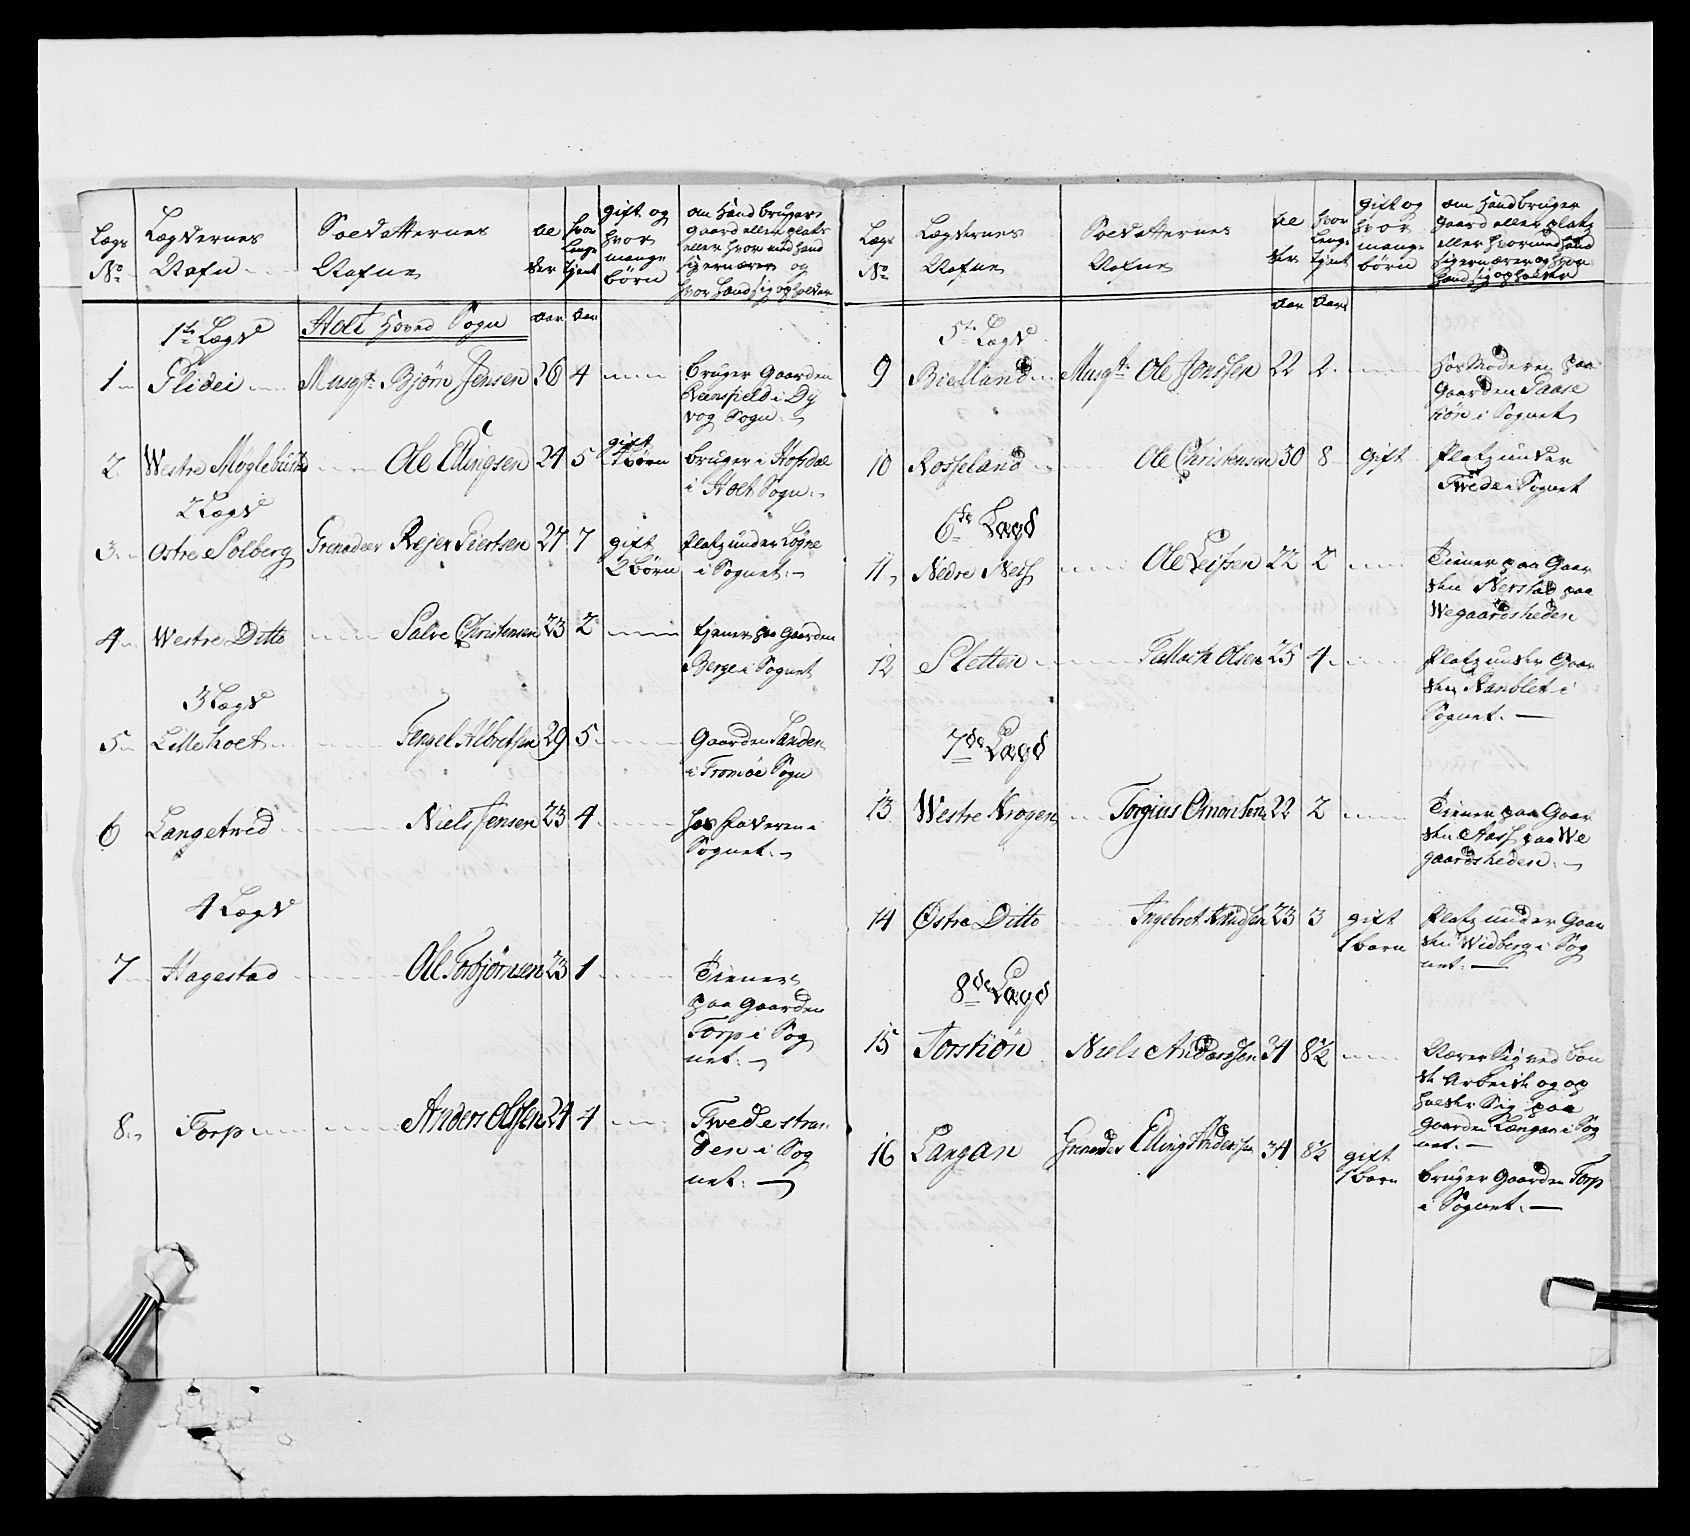 Lægs No
Lægdernes Nafn
Soldatternes Nafne
al der
hvor lenge tjent
gift og hvor mange børn
om hand bruger gaard eller plats eller hvor med hand sig ernærer og hvor hand sig opholder
Aar Aar
1te Lægd
Holt Hoved Sogn
1 Flidei Musqt. Bjørn Jensen 26 4 bruger Gaarden
i Dy
vog Sogn
2 Westre Møglebust Ole Ellingsen 24 5 gift
1 børn bruger i Hofdal
i Holt Sogn
2 Lægd
3 Ostre Solberg Grenadeer Rejer Giertsen 27 7 gift
2 børn Platz under Løgne
i Sognet
4 Westre Ditto Salve Christensen 23 2 tjener paa Gaarden
Berge i Sognet
3 Lægd
5 Lilleholt Tengel Albretsen 29 5 Gaarden Sanden
i Tromøe Sogn
6 Langetved Niels Jensen 23 4 hos faderen i
Sognet
4 Lægd
7 Hagestad Ole Torbjørnsen 23 1 Tiener
paa Gaarden
Torp i Sog
net
8 Torp Anders Olsen 24 4 Twedestran
den i Sog
net
Lægs No
Lægdernes Nafne
Soldatternes Nafne
al der
hvor lenge tjent
gift og hvor mange børn
om Hand bruger Gaard eller plats eller hvor med hand sig ernærer og hvor hand sig opholder
Aar Aar
5te Lægd
9 Bielland Musqt. Ole Jonssen 22 2 hos Moderen paa
Gaarden
i Sognet
10 Rosseland Ole Christensen 30 8 gift Platz under
Twede i Sognet
6de Lægd
11 Nedre Ness Ole Leifsen 22 2 Tiener paa Gaar
den Nerstad paa
Wegaardsheden
12 Sletten Tallach Olsen 25 4 Platz under Gaar
den Ramblet i
Sognet
7de Lægd
13 Westre Krogen Torgius Omonsen 22 2 Tiener paa Gaar
den Aass paa We
gaardsheden
14 Østre Ditto Ingebret Knudsen 23 3 gift
1 barn Platz under Gaar
den Widberg i Sog
net
8de Lægd
15 Torstiøn Niels Anderssen 34 8½ Nærer Sig ved Bon
de Arbeide og op
holder Sig paa
Gaarden Længan i Sog
net
16 Langan Grenadeer Elling Anderssen 34 8½ gift
1 barn bruger Gaarden Torp
i Sognet